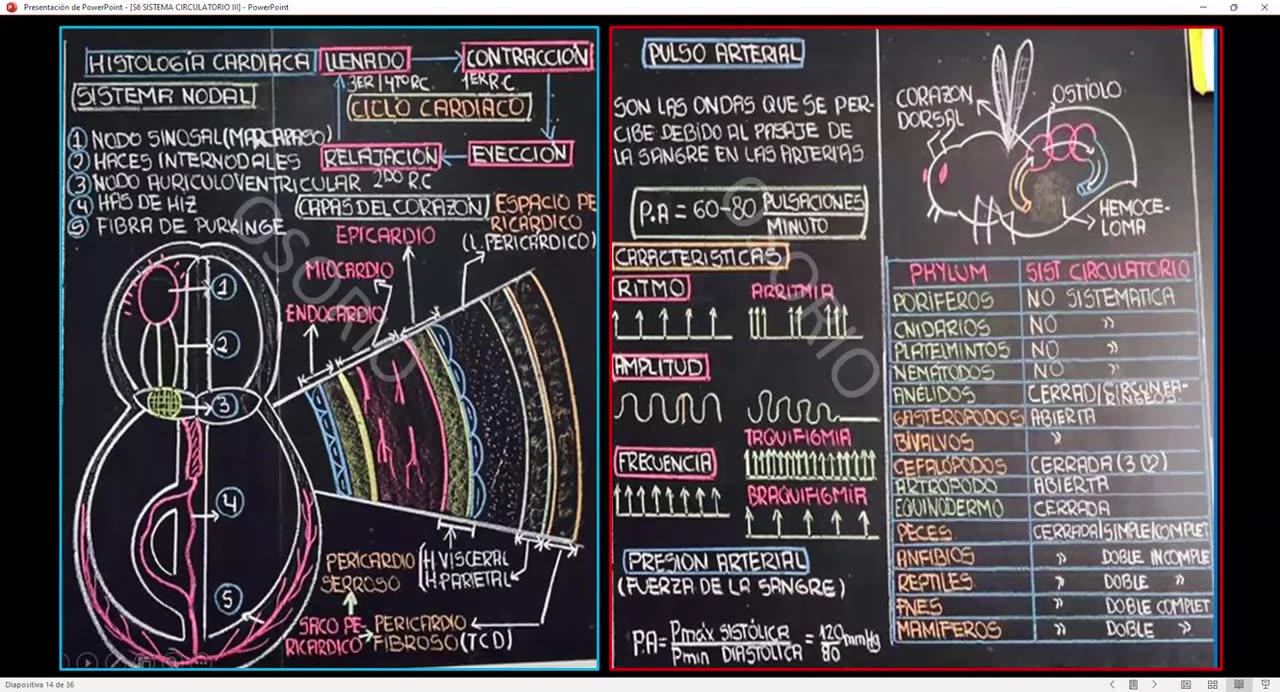 Presentación de PowerPoint - [S6 SISTEMA CIRCULATORIO III] - PowerPoint
HISTOLOGÍA CARDIACA
SISTEMA NODAL
① NODO SINOSAL (MARCAPASO)
② HACES INTERNODALES
③ NODO AURICULOVENTRICULAR
④ HAS DE HIZ
⑤ FIBRA DE PURKINGE
LLENADO
CONTRACCIÓN
3ER|4TO R.C.
1ER R.C.
CICLO CARDIACO
RELAJACIÓN
EYECCIÓN
2DO R.C
CAPAS DEL CORAZÓN
ESPACIO PE
RICÁRDICO
(L.PERICÁRDICO)
EPICARDIO
MIOCARDIO
ENDOCARDIO
1
2
3
4
5
PERICARDIO
SEROSO
H.VISCERAL
H.PARIETAL
SACO PE-
RICÁRDICO
PERICARDIO
FIBROSO (TCD)
OSORIO
PULSO ARTERIAL
SON LAS ONDAS QUE SE PER-
CIBE DEBIDO AL PASAJE DE
LA SANGRE EN LAS ARTERIAS
P.A = 60-80 PULSACIONES
MINUTO
CARACTERISTICAS
RITMO
ARRITMIA
AMPLITUD
TAQUIFIGMIA
FRECUENCIA
BRAQUIFIGMIA
PRESION ARTERIAL
(FUERZA DE LA SANGRE)
P.A= Pmáx SISTÓLICA = 120 mmHg
Pmin DIASTÓLICA 80
OSORIO
CORAZON
DORSAL
OSTIOLO
HEMOCE-
LOMA
PHYLUM SIST CIRCULATORIO
PORIFEROS NO SISTEMATICA
CNIDARIOS NO »
PLATELMINTOS NO »
NEMATODOS NO »
ANELIDOS CERRAD/
GASTEROPODOS ABIERTA
BIVALVOS »
CEFALÓPODOS CERRADA (3 ♡)
ARTROPODO ABIERTA
EQUINODERMO CERRADA
PECES CERRADA/SIMPLE/COMPLET
ANFIBIOS » DOBLE INCOMPLE
REPTILES » DOBLE »
AVES » DOBLE COMPLET
MAMIFEROS » DOBLE »
Diapositiva 14 de 36